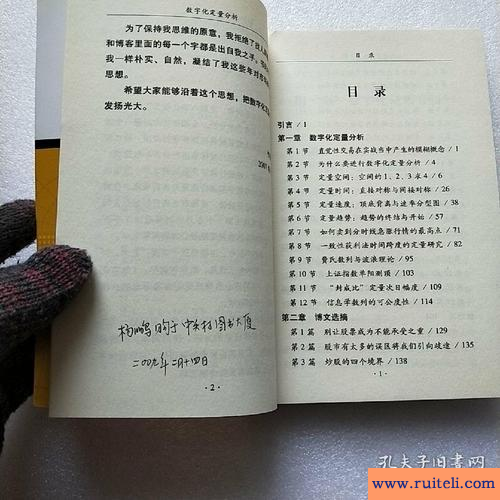 数字化定量分析
为了保持我思维的原意，我拒绝了
和博客里面的每一个字都是出自我之手，
我一样朴实、自然，凝结了我这些年对
思想。
希望大家能够沿着这个思想，把数字化定
发扬光大。
2007
杨鹏购于中关村图书大厦
二〇〇九年二月十四日
·2·
目 录
目 录
引言 / 1
第一章 数字化定量分析
第1节 直觉性交易在实战当中产生的模糊概念 / 1
第2节 为什么要进行数字化定量分析 / 4
第3节 定量空间：空间的1、2、3求4 / 6
第4节 定量时间：直接对称与间接对称 / 26
第5节 定量速度：顶底背离与速率分型图 / 38
第6节 定量趋势：趋势的终结与开始 / 57
第7节 如何卖到分时线急涨行情的最高点 / 71
第8节 一致性获利法时间跨度的定量研究 / 82
第9节 费氏数列与波浪理论 / 95
第10节 上证指数单阳测顶 / 110
第11节 “封成比”定量次日幅度 / 110
第12节 信息学数列的可公度性 / 114
第二章 博文选摘
第1篇 别让股票成为不能承受之重 / 129
第2篇 股市有太多的误区将我们引向歧途 / 135
第3篇 炒股的四个境界 / 138
·1·
孔夫子旧书网
www.ruiteli.com